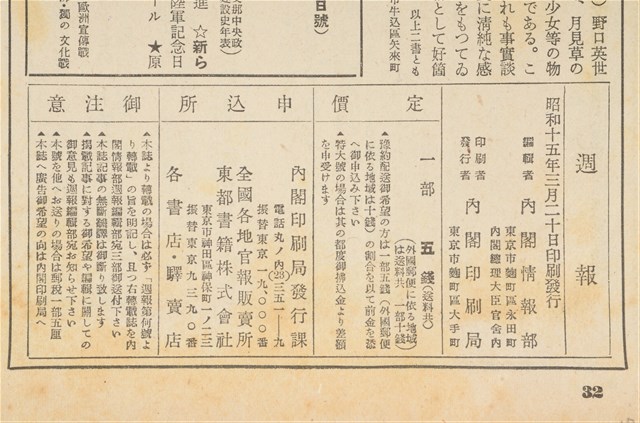 野口英世
、月見草の
少女等の物
である。こ
れも事實談
に清純な感
をもつてゐ
として好箇
以上二書とも
市牛込區矢來町
日號
郵中央政
設史年表
進 ☆新ら
陸軍記念日
ール ★原
歐洲宣傳戰
獨の文化戰
週報
昭和十五年三月二十日印刷發行
編輯者 東京市麴町區永田町
內閣總理大臣官舍內
內閣情報部
印刷者
發行者 東京市麴町區大手町
內閣印刷局
定價
一部 五錢(送料共)
(外國郵便に依る地域
は送料共 一部十錢)
▲豫約配送御希望の方は一部五錢(外國郵便
に依る地域は十錢)の割合を以て前金を添
へ御申込み下さい
▲特大號の場合は其の都度御拂込金より差額
を申受けます
申込所
內閣印刷局發行課
電話丸ノ內(23)三五一―九
振替東京一九〇〇〇番
全國各地官報販賣所
東都書籍株式會社
東京市神田區神保町一ノ二三
振替東京九三九〇番
各書店・驛賣店
御注意
▲本誌より轉載の場合は必ず「週報第何號よ
り轉載」の旨を明記し、且つ右轉載誌を內
閣情報部週報編輯部宛三部御送付下さい
▲本誌記事の無斷飜譯は御斷り致します
▲揭載記事に對する御希望や編輯に關しての
御意見も週報編輯部宛お知らせ下さい
▲本號を他へお送りの場合は郵稅一部五厘
▲本誌へ廣吿御希望の向は內閣印刷局へ
32